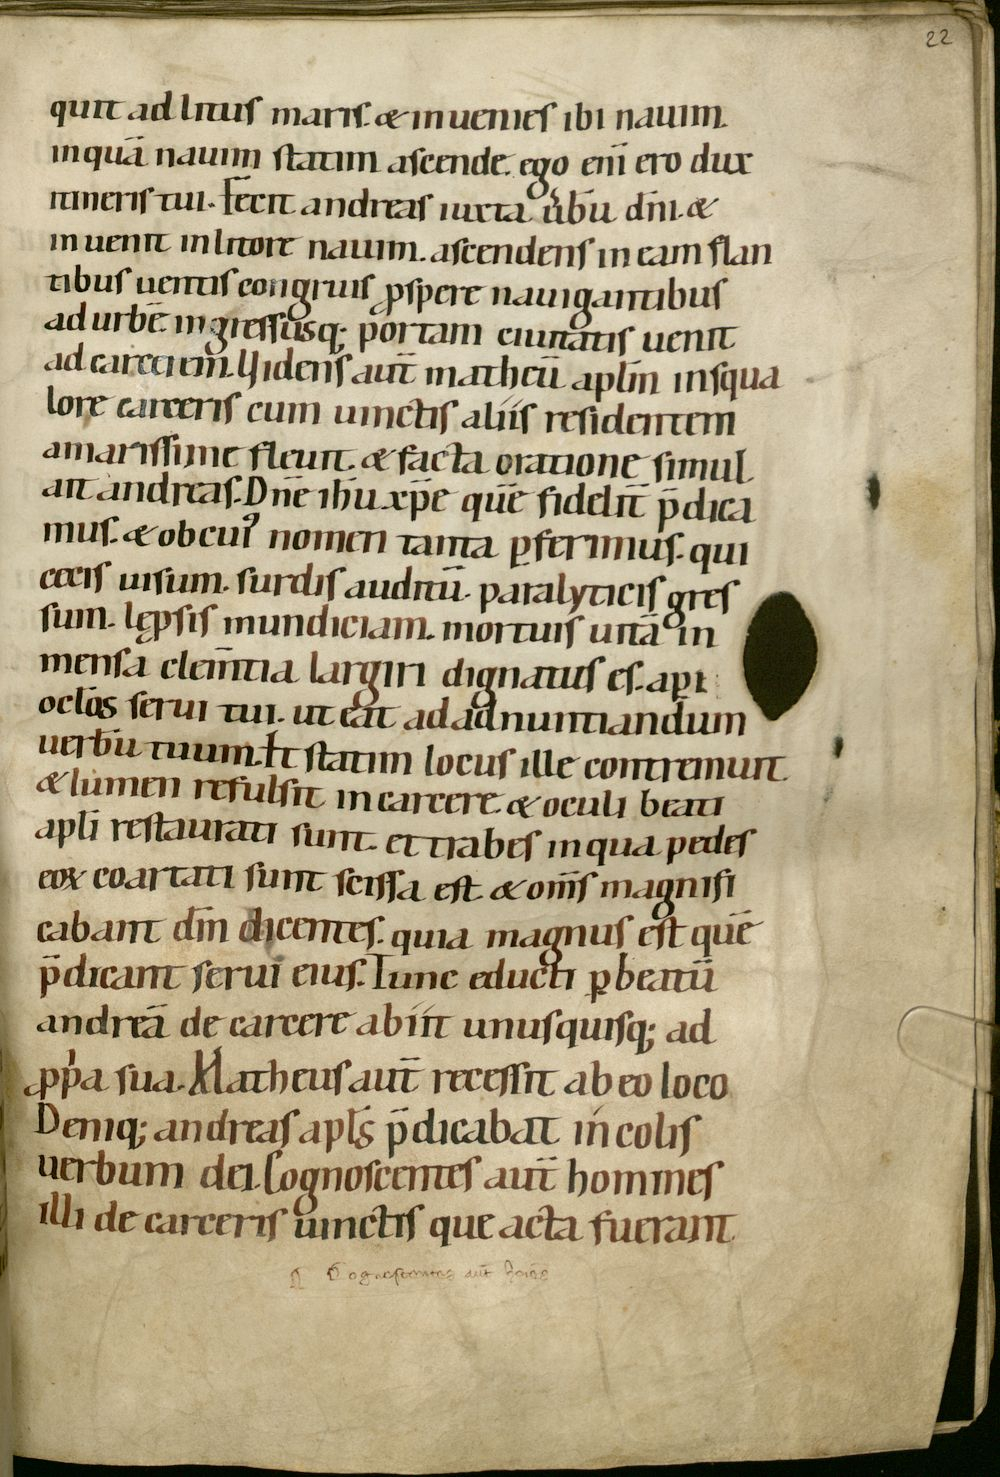 22
quit ad litus maris. & inuenies ibi nauim.
in quā nauim statim ascende. ego eni̅ ero dux
itineris tui. Fecit andreas iuxta ũbū dn̅i. &
inuenit in litore nauim. ascendens in eam flan
tibus uentis congruis ꝓspere nauigantibus
ad urbē. ingressusq; portam ciuitatis uenit
ad carcerem. Uidens aut̅ matheū apl̅m in squa
lore carceris cum uinctis aliis residentem
amarissime fleuit. & facta oratione simul
ait andreas. Dn̅e ih̅u xp̅e que̅ fidelit̅ p̅dica
mus. & ob cui᾽ nomen tanta ꝑferimus. qui
cecis uisum. surdis auditū. paralyticis gres
sum. lęprsis mundiciam. mortuis uitā in
mensa clem̅tia largiri dignatus es. aꝑi
ocl̅os serui tui. ut eat ad adnuntiandum
uerbū tuum. Et statim locus ille contremuit.
& lumen refulsit in carcere. & oculi beati
apl̅i restaurati sunt. et trabes in qua pedes
eoꝝ coartati sunt scissa est. & om̅s magnifi
cabant dn̅m dicentes. quia magnus est que̅
p̅dicant serui eius. Tunc educti ꝑ beatū
andreā de carcere abiit unusquisq; ad
ꝓp̍a sua. Matheus aut̅ recessit ab eo loco
Deniq; andreas apl̅s p̅dicabat incolis
uerbum dei. Cognoscentes aut̅ homines
illi de carceris uinctis que acta fuerant.
Cognoscentes aut̅